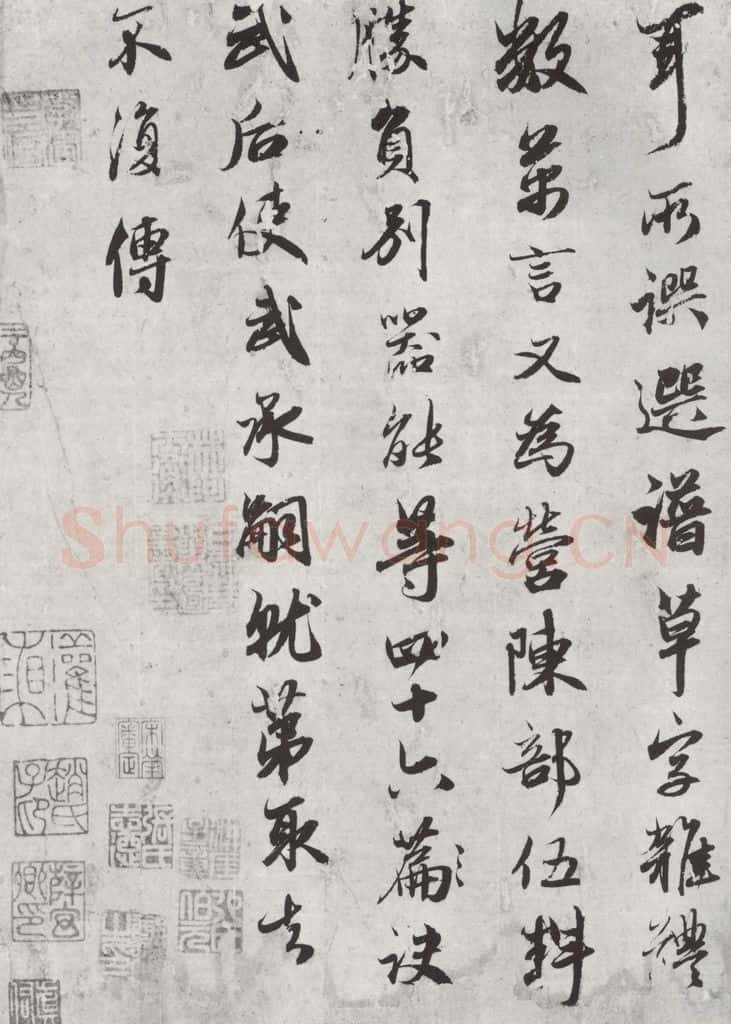 耳所譔選譜草字雜體
數萬言又為營陳部伍料
勝負別器能等四十六篇訣
武后使武承嗣就第取去
不復傳
Shufawang.CN